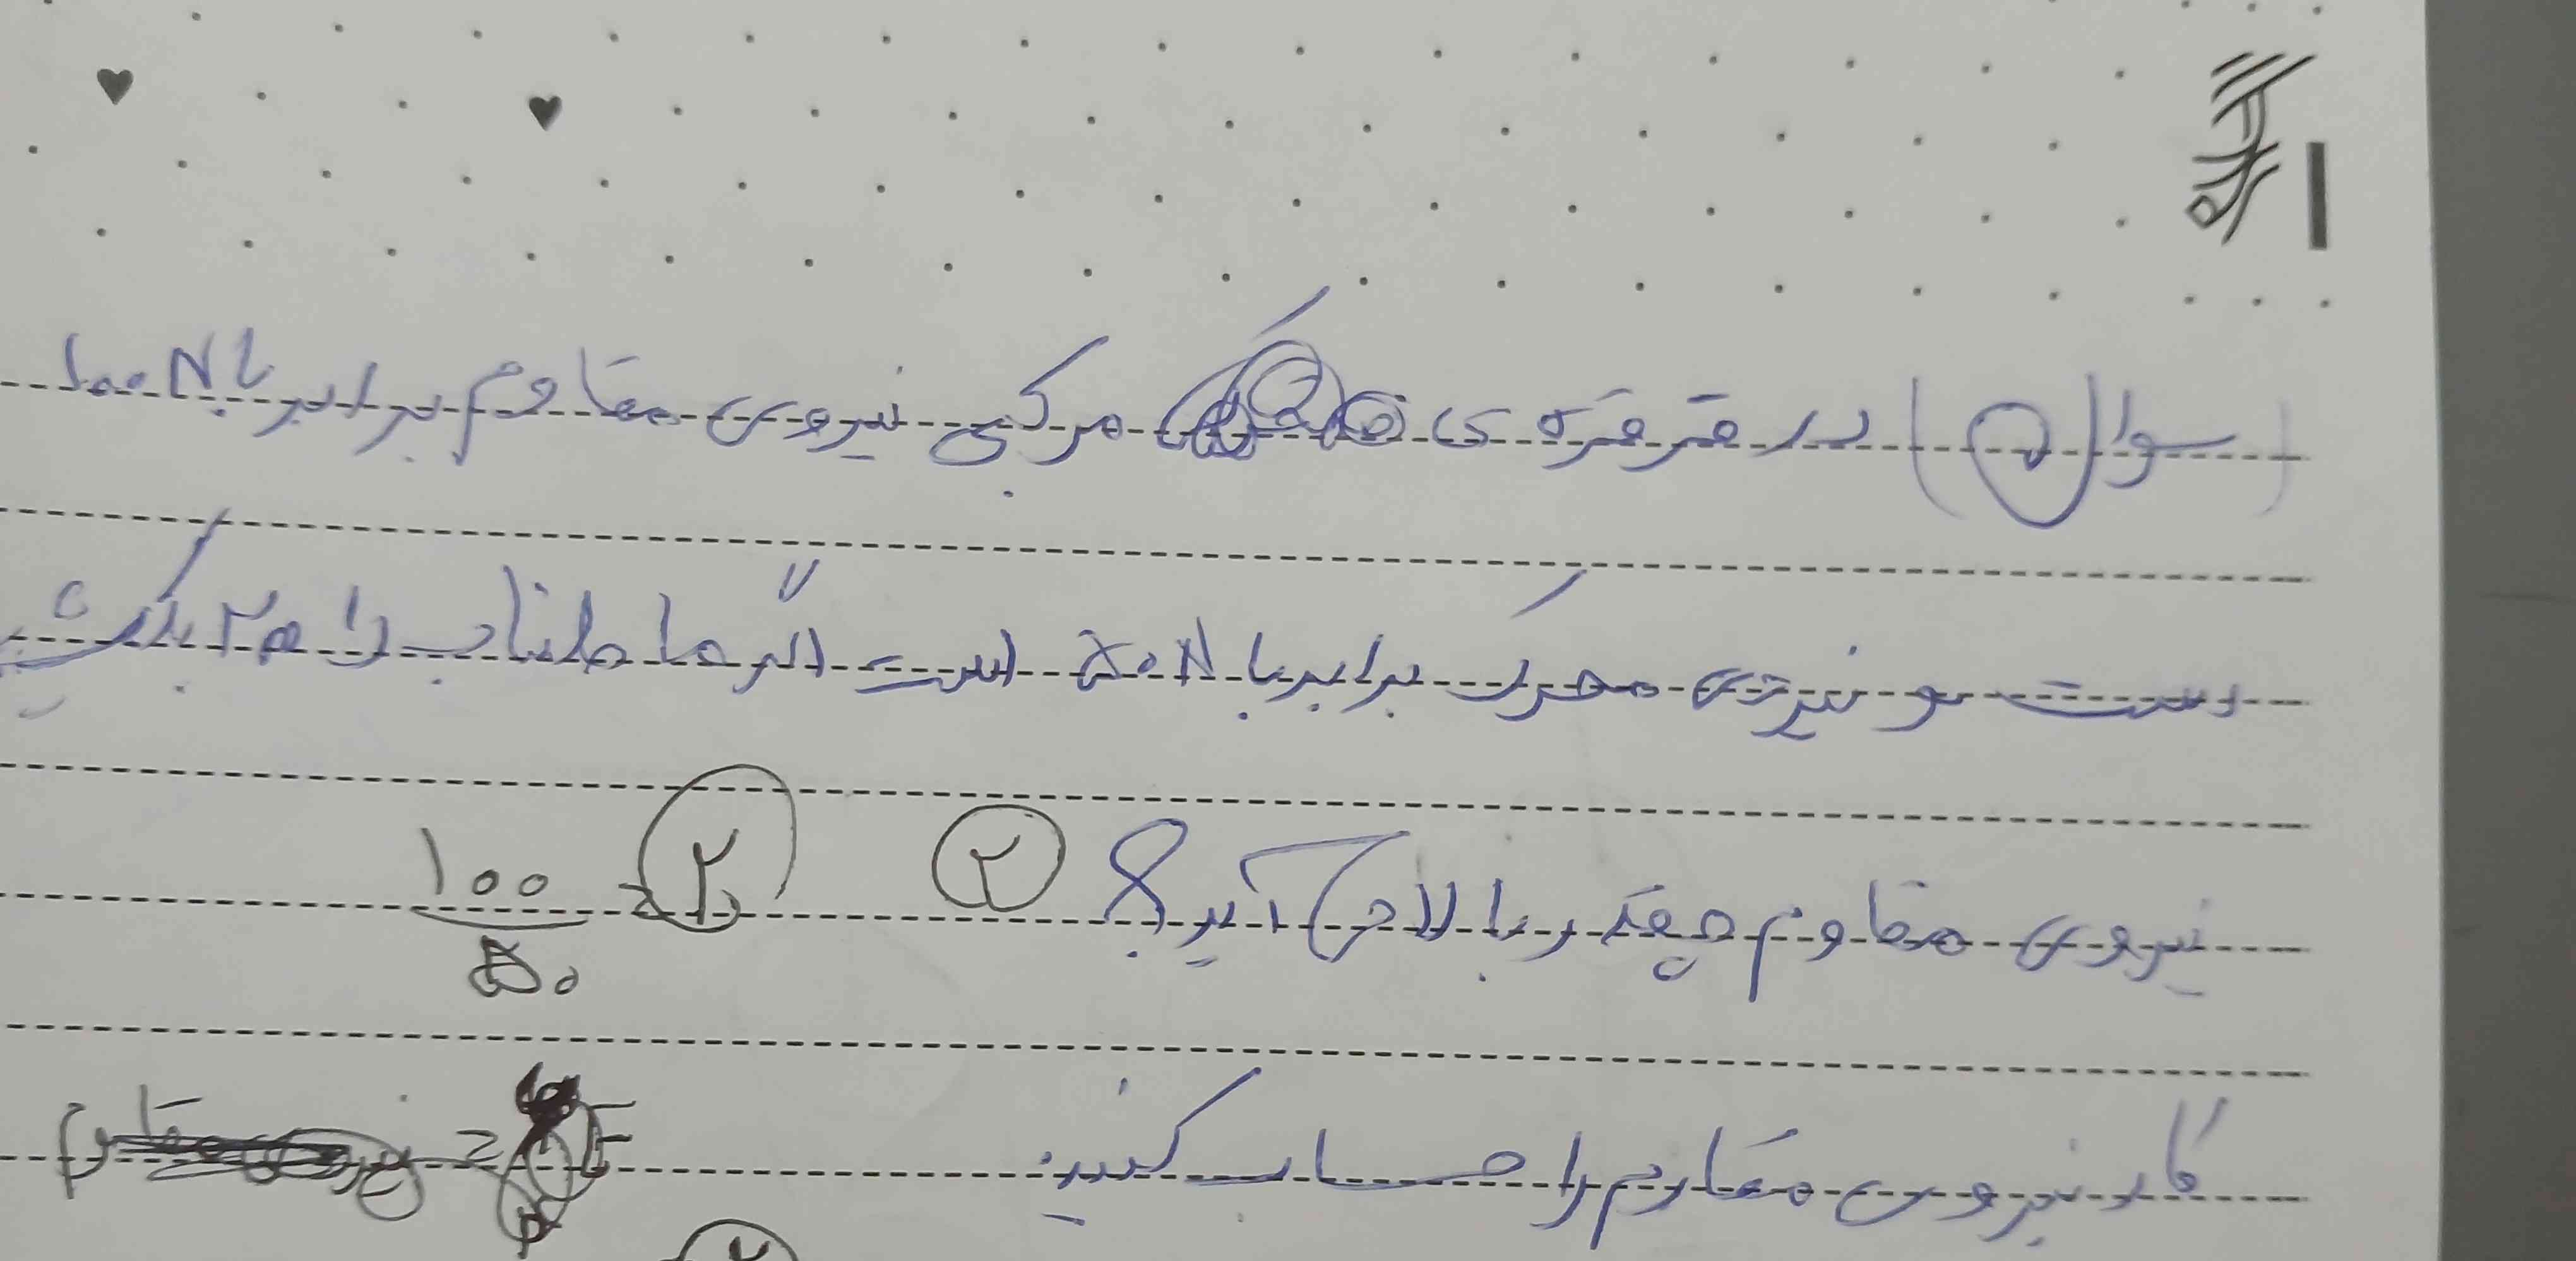 (سوال) در قرقره ی مرکبی نیروی مقاوم برابر با ۱۰۰N
است و نیروی محرک برابر با ۵۰N است اگر ما طناب را ۲m بکشیم
نیروی مقاوم چقدر بالا می آید؟ ۲ ۱۰۰/۵۰ = ۲
کار نیروی مقاوم را حساب کنید.